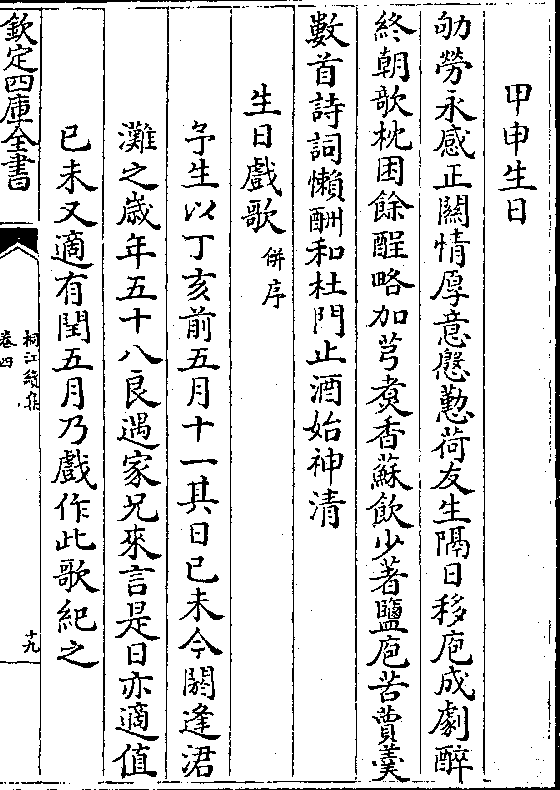 甲申生日
劬勞永感正關情厚意慇懃荷友生隔日移庖成劇醉
終朝欹枕困餘酲略加芎煑香蘇飲少著鹽庖苦蕒羮
數首詩詞懶酬和杜門止酒始神清
生日戲歌併序
予生以丁亥前五月十一其日己未今閼逢涒
灘之歳年五十八良遇家兄來言是日亦適值
己未又適有閏五月乃戲作此歌紀之
欽定四庫全書
桐江續集
卷四
十九